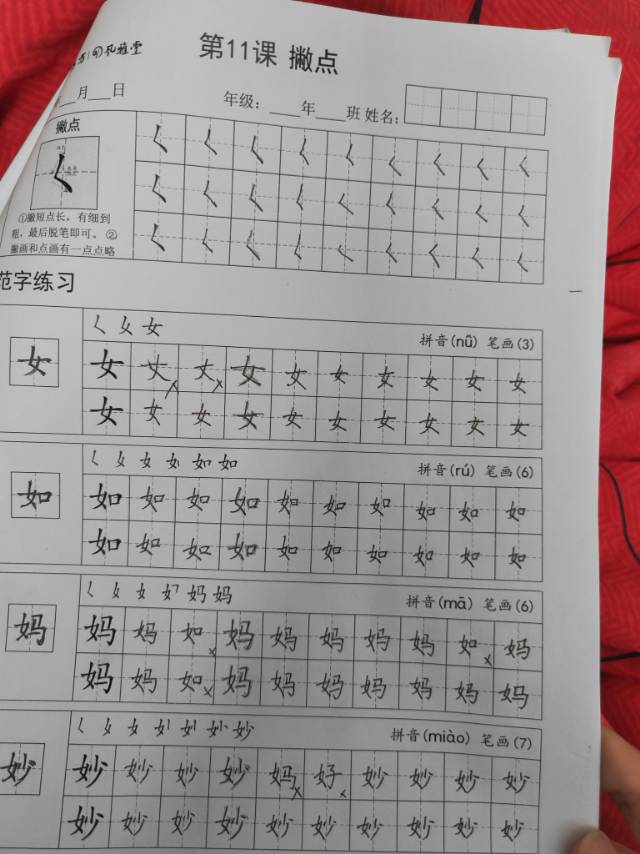 第11课 撇点
月 日
年级: 年 班 姓名:
撇点
①撇短点长，有细到
粗，最后脱笔即可。②
撇画和点画有一点点略
く く く く く く く く く
く く く く く く く く く
く く く く く く く く く
范字练习
女
く 女 女 拼音(nǚ) 笔画(3)
女 丈 丈 女 女 女 女 女 女 女
女 女 女 女 女 女 女 女 女 女
如
如 如 拼音(rú) 笔画(6)
如 如 如 如 如 如 如 如 如 如
如 如 如 如 如 如 如 如 如 如
妈
妈 妈 拼音(mā) 笔画(6)
妈 妈 如 妈 妈 妈 妈 妈 如 妈
妈 妈 如 妈 妈 妈 妈 妈 妈 妈
妙
妙 拼音(miào) 笔画(7)
妙 妙 妙 妙 妈 好 妙 妙 妙 妙
妙 妙 妙 妙 妙 妙 妙 妙 妙 妙